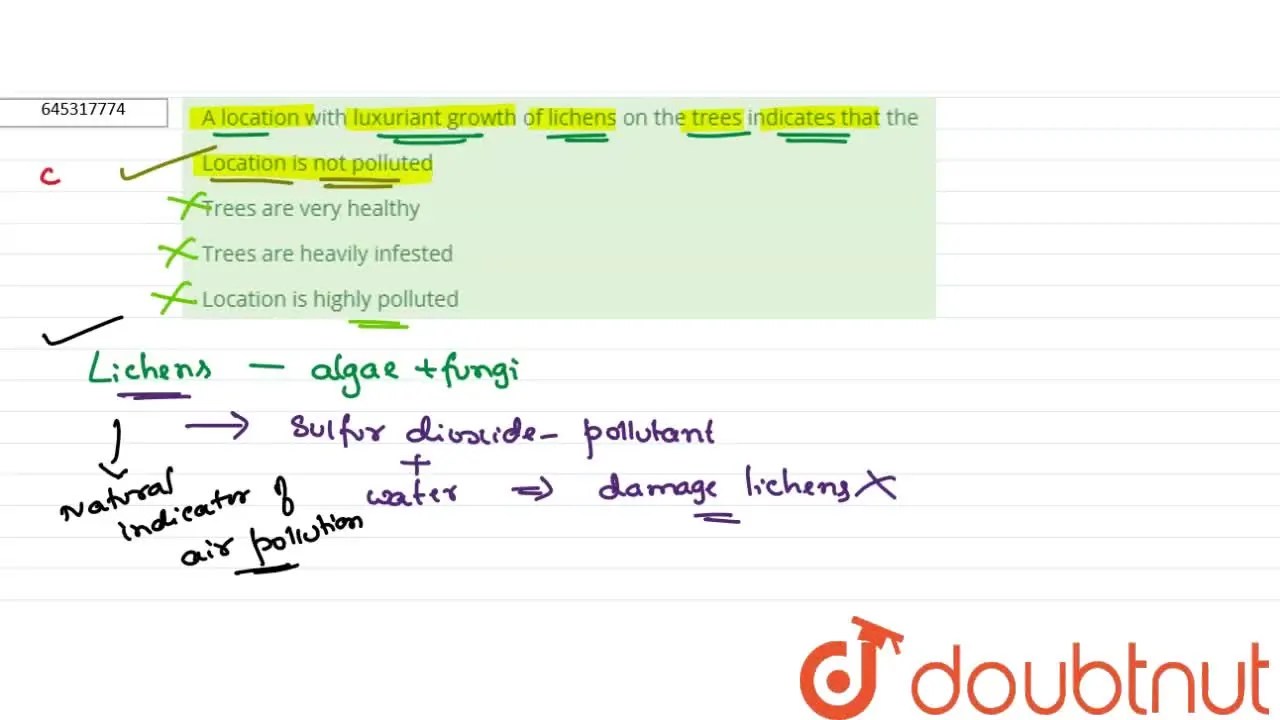 645317774
A location with luxuriant growth of lichens on the trees indicates that the
C
Location is not polluted
Trees are very healthy
Trees are heavily infested
Location is highly polluted
Lichens — algae + fungi
→ Sulfur dioxide - pollutant
+
water ⇒ damage lichens X
Natural
indicator of
air pollution
doubtnut